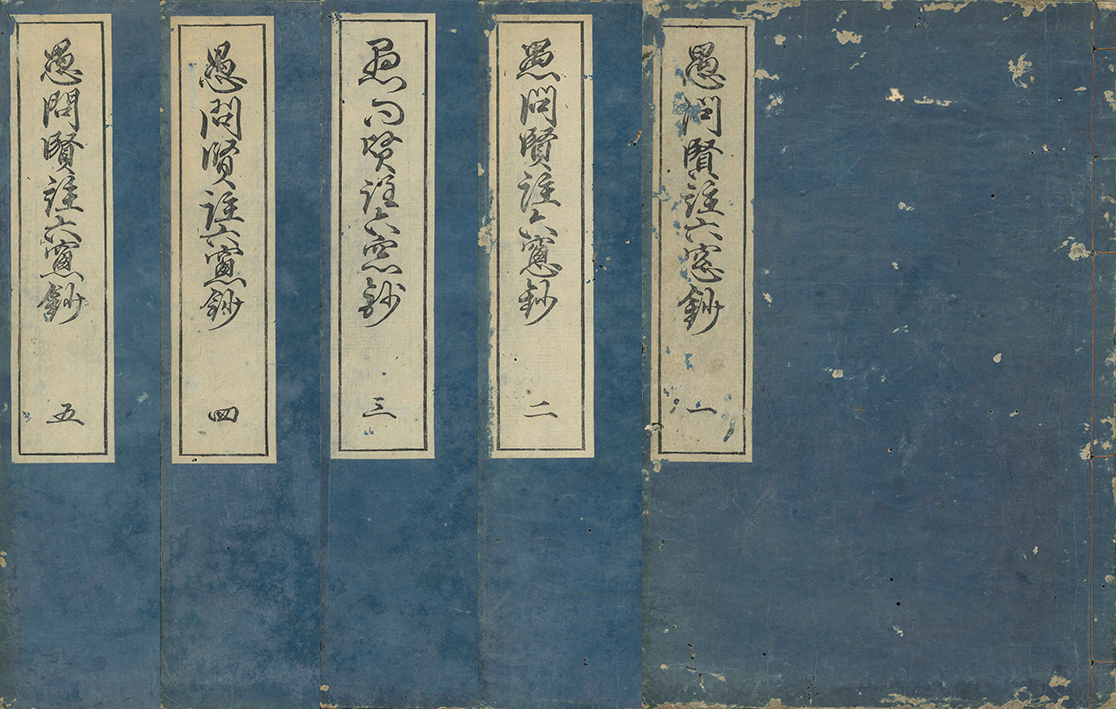 愚問賢註六窓鈔 一
愚問賢註六窓鈔 二
愚問賢註六窓鈔 三
愚問賢註六窓鈔 四
愚問賢註六窓鈔 五